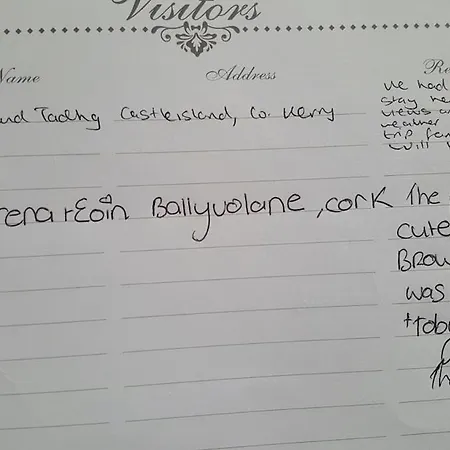 Visitors
Name Address Re
and Tadhg Castleisland, Co. Kerry
we had
stay he
views a
weather
trip fam
will
rena + Eoin Ballyvolane, cork The
cute
Brow
was
+ tob